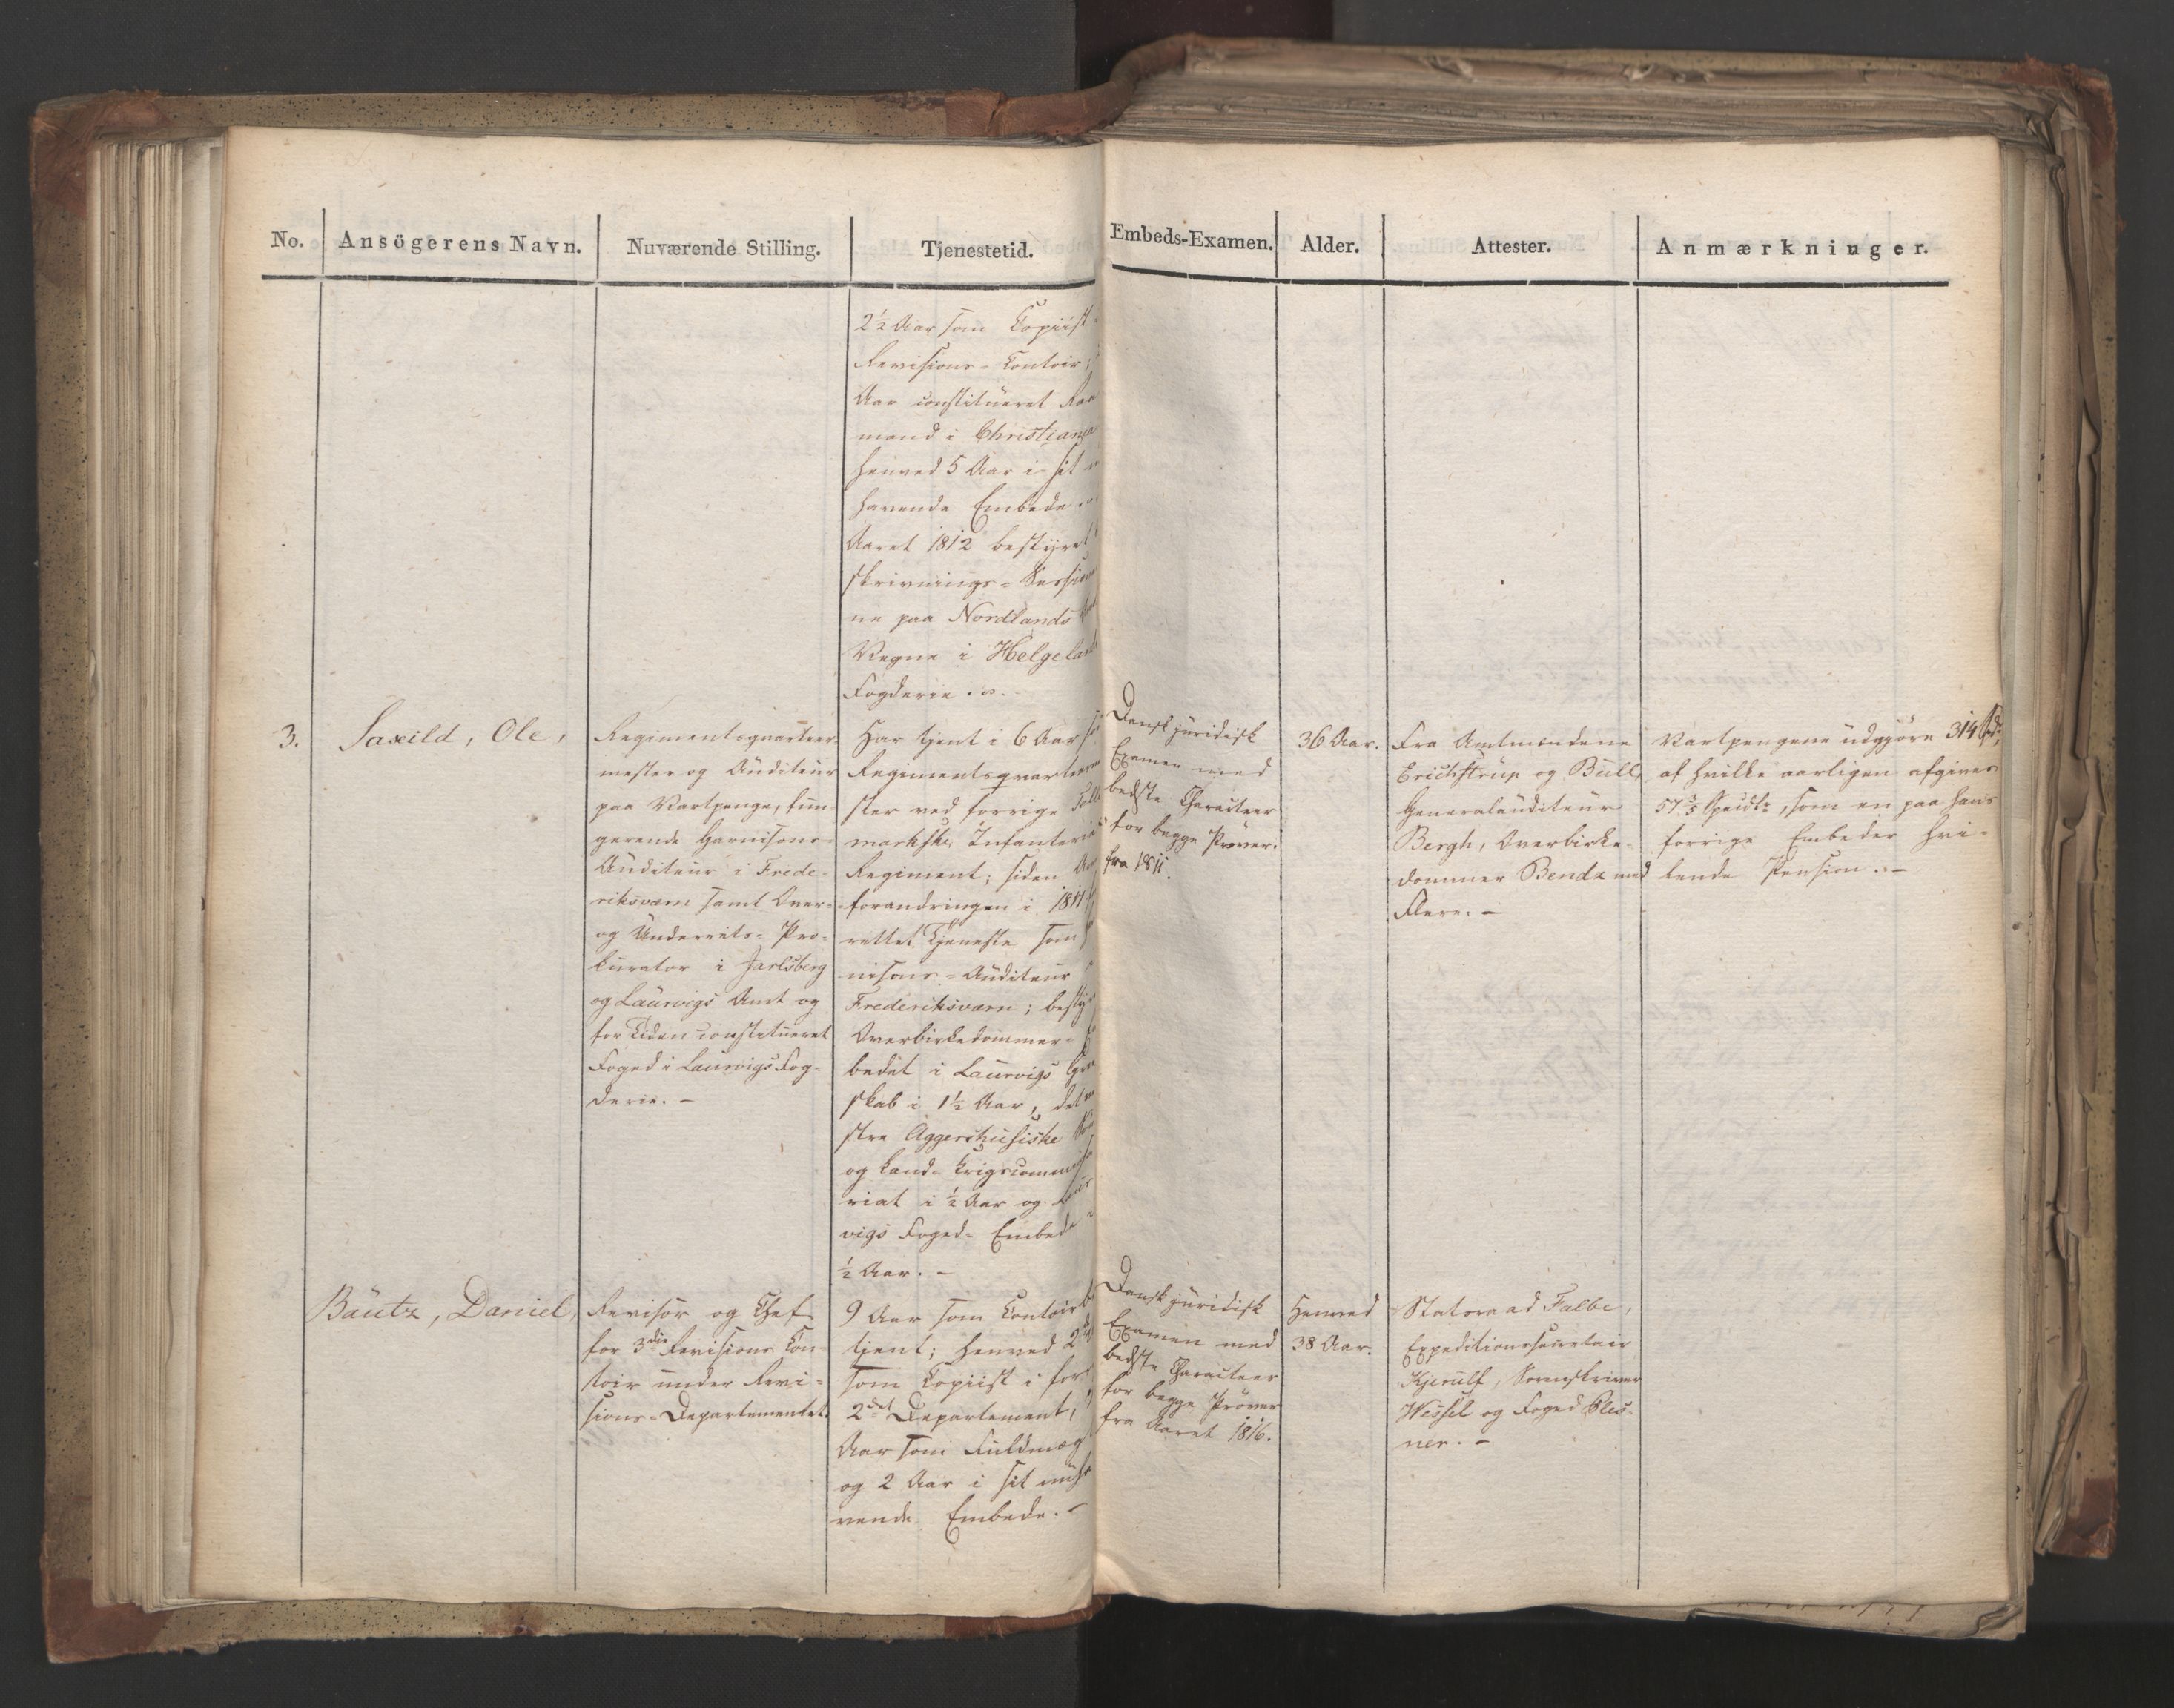 No. Ansögerens Navn. Nuværende Stilling. Tjenestetid. Embeds-Examen. Alder. Attester. Anmærkninger.
2½ Aar som Copiist
Revisions-Contoir;
Aar constitueret Raa
mand i Christiania
henved 5 Aar i sit
havende Embede.
Aaret 1812 bestyret
skrivnings-Session
ne paa Nordlands
Vegne i Helgelands
Fogderie.
3.
Saxild, Ole,
Regimentsqvarteer-
mester og Auditeur
paa Vartpenge, fun-
gerende Garnisons-
Auditeur i Frede-
riksværn samt Over-
og Underrets-Pro-
kurator i Jarlsberg
og Laurvigs Amt og
for Tiden constitueret
Foged i Laurvigs Fog-
derie. –
Har tjent i 6 Aar
Regimentsqvarteerme
ster ved forrige
markske Infanterie
Regiment; siden
forandringen i
rettet Tjeneste som
nisons-Auditeur
Frederiksværn; besty
Overbirkedommer-
bedet i Laurvigs
skab i 1½ Aar, det
stre Aggershusiske
og Land-Krigscommissa
riat i ½ Aar og Laur
vigs Foged-Embede
½ Aar. –
Dansk juridisk
Examen med
bedste Characteer
for begge Prøver.
fra 1811.
36 Aar.
Fra Amtmændene
Erichstrup og Bull,
Generalauditeur
Bergh, Overbirke-
dommer Bendz med
Flere. –
Vartpengene udgjøre 314
af hvilke aarligen afgives
57 3/5 Spdlr, som en paa hans
forrige Embeder hvi-
lende Pension. –
Bautz, Daniel,
Revisor og Chef
for 3die Revisions Con-
toir under Revi-
sions-Departementet.
9 Aar som Contoir
tjent; henved 2
som Copiist i for
2det Departement,
Aar som Fuldmæg
og 2 Aar i sit nuhæ
vende Embede. –
Dansk juridisk
Examen med
bedste Characteer
for begge Prøver
fra Aaret 1816.
Henved
38 Aar.
Statsraad Falbe,
Expeditionssecretair
Kjerulf, Sorenskriver
Wessel og Foged Ples-
ner. –